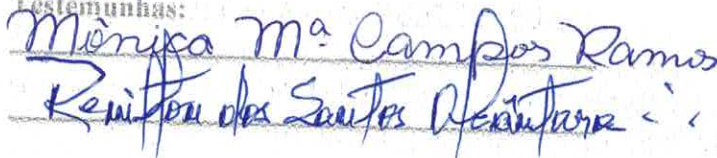 Testemunhas:
Mônica Mª Campos Ramos
Renilton dos Santos Alcântara